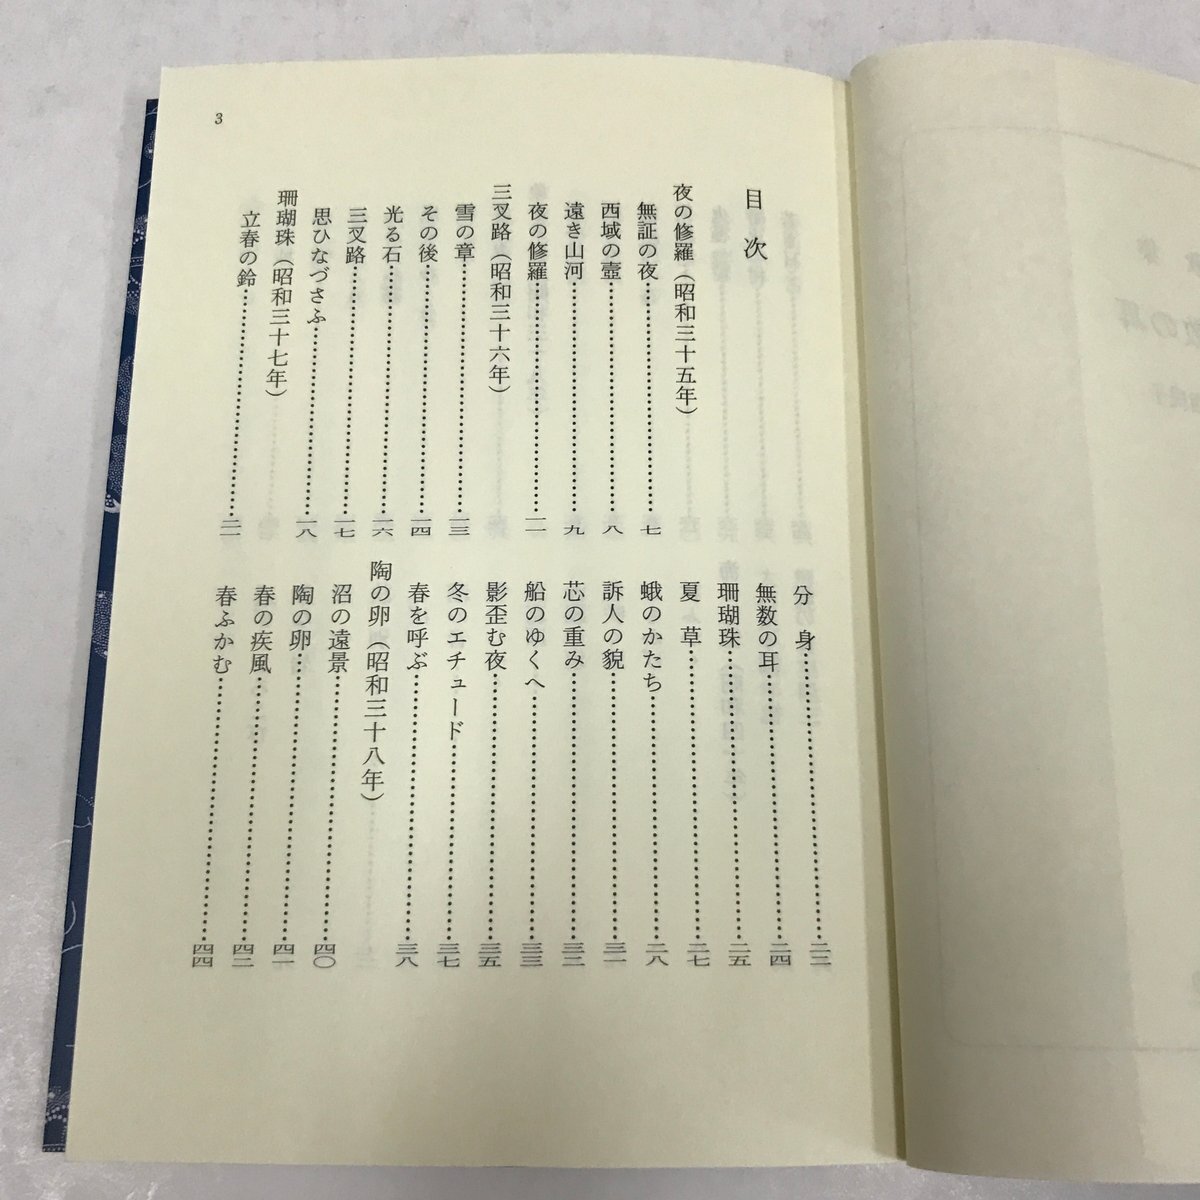 目次
夜の修羅（昭和三十五年）
無証の夜……………七
西域の壺……………八
遠き山河……………九
夜の修羅……………一一
三叉路（昭和三十六年）
雪の章……………一三
その後……………一四
光る石……………一六
三叉路……………一七
思ひなづさふ……………一八
珊瑚珠（昭和三十七年）
立春の鈴……………二一
分身……………二二
無数の耳……………二四
珊瑚珠……………二五
夏草……………二七
蛾のかたち……………二八
訴人の貌……………三一
芯の重み……………三二
船のゆくへ……………三三
影歪む夜……………三五
冬のエチュード……………三七
春を呼ぶ……………三八
陶の卵（昭和三十八年）
沼の遠景……………四〇
陶の卵……………四一
春の疾風……………四二
春ふかむ……………四四
3